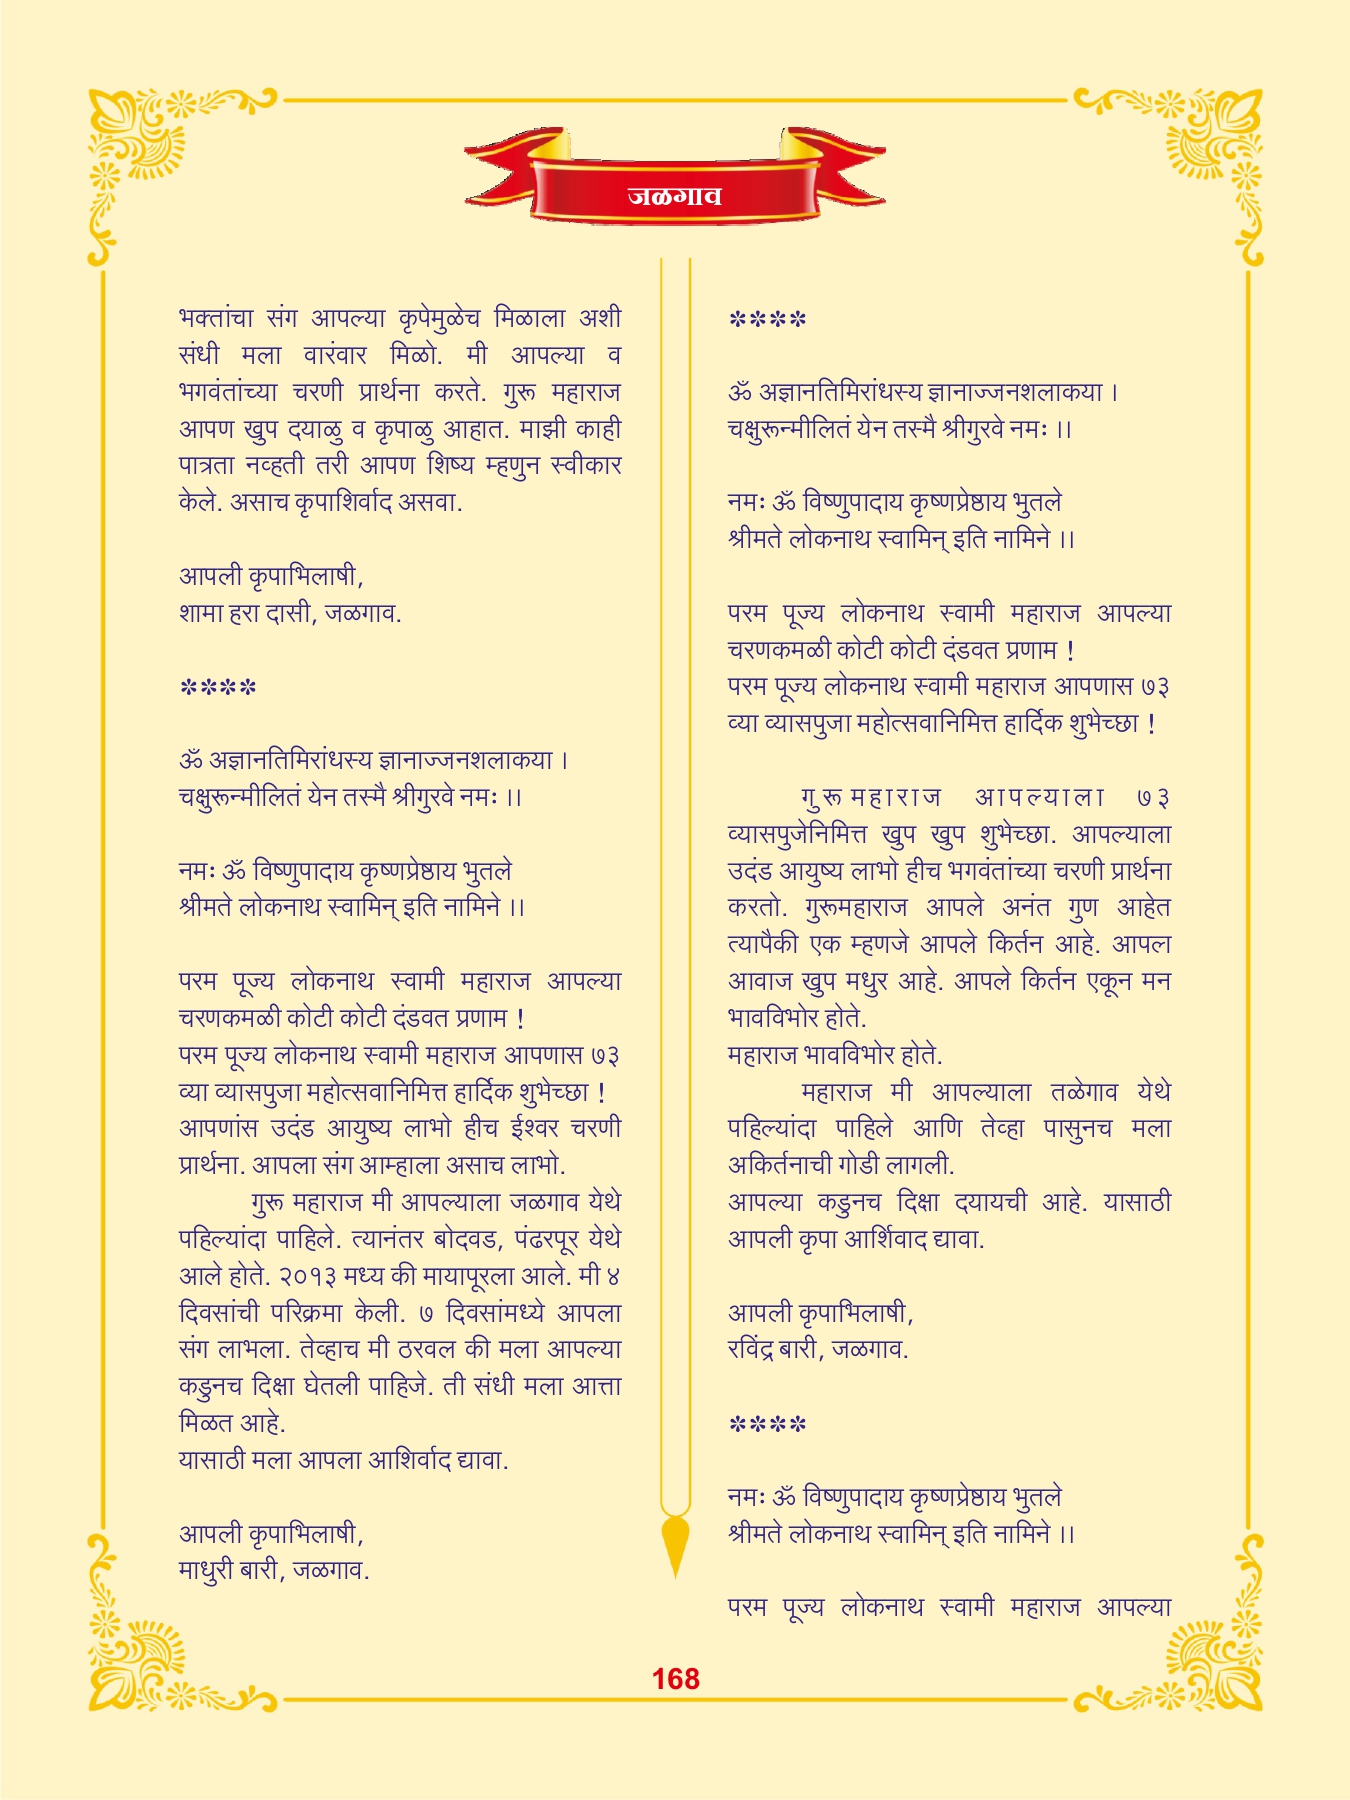 जळगाव
भक्तांचा संग आपल्या कृपेमुळेच मिळाला अशी
संधी मला वारंवार मिळो. मी आपल्या व
भगवंतांच्या चरणी प्रार्थना करते. गुरू महाराज
आपण खुप दयाळु व कृपाळु आहात. माझी काही
पात्रता नव्हती तरी आपण शिष्य म्हणुन स्वीकार
केले. असाच कृपाशिर्वाद असवा.
आपली कृपाभिलाषी,
शामा हरा दासी, जळगाव.
****
ॐ अज्ञानतिमिरांधस्य ज्ञानाज्जनशलाकया ।
चक्षुरून्मीलितं येन तस्मै श्रीगुरवे नमः ।।
नमः ॐ विष्णुपादाय कृष्णप्रेष्ठाय भुतले
श्रीमते लोकनाथ स्वामिन् इति नामिने ।।
परम पूज्य लोकनाथ स्वामी महाराज आपल्या
चरणकमळी कोटी कोटी दंडवत प्रणाम !
परम पूज्य लोकनाथ स्वामी महाराज आपणास ७३
व्या व्यासपुजा महोत्सवानिमित्त हार्दिक शुभेच्छा !
आपणांस उदंड आयुष्य लाभो हीच ईश्वर चरणी
प्रार्थना. आपला संग आम्हाला असाच लाभो.
गुरू महाराज मी आपल्याला जळगाव येथे
पहिल्यांदा पाहिले. त्यानंतर बोदवड, पंढरपूर येथे
आले होते. २०१३ मध्य की मायापूरला आले. मी ४
दिवसांची परिक्रमा केली. ७ दिवसांमध्ये आपला
संग लाभला. तेव्हाच मी ठरवल की मला आपल्या
कडुनच दिक्षा घेतली पाहिजे. ती संधी मला आत्ता
मिळत आहे.
यासाठी मला आपला आशिर्वाद द्यावा.
आपली कृपाभिलाषी,
माधुरी बारी, जळगाव.
****
ॐ अज्ञानतिमिरांधस्य ज्ञानाज्जनशलाकया ।
चक्षुरून्मीलितं येन तस्मै श्रीगुरवे नमः ।।
नमः ॐ विष्णुपादाय कृष्णप्रेष्ठाय भुतले
श्रीमते लोकनाथ स्वामिन् इति नामिने ।।
परम पूज्य लोकनाथ स्वामी महाराज आपल्या
चरणकमळी कोटी कोटी दंडवत प्रणाम !
परम पूज्य लोकनाथ स्वामी महाराज आपणास ७३
व्या व्यासपुजा महोत्सवानिमित्त हार्दिक शुभेच्छा !
गुरू महाराज आपल्याला ७३
व्यासपुजेनिमित्त खुप खुप शुभेच्छा. आपल्याला
उदंड आयुष्य लाभो हीच भगवंतांच्या चरणी प्रार्थना
करतो. गुरूमहाराज आपले अनंत गुण आहेत
त्यापैकी एक म्हणजे आपले किर्तन आहे. आपल
आवाज खुप मधुर आहे. आपले किर्तन एकून मन
भावविभोर होते.
महाराज भावविभोर होते.
महाराज मी आपल्याला तळेगाव येथे
पहिल्यांदा पाहिले आणि तेव्हा पासुनच मला
अकिर्तनाची गोडी लागली.
आपल्या कडुनच दिक्षा दयायची आहे. यासाठी
आपली कृपा आर्शिवाद द्यावा.
आपली कृपाभिलाषी,
रविंद्र बारी, जळगाव.
****
नमः ॐ विष्णुपादाय कृष्णप्रेष्ठाय भुतले
श्रीमते लोकनाथ स्वामिन् इति नामिने ।।
परम पूज्य लोकनाथ स्वामी महाराज आपल्या
168